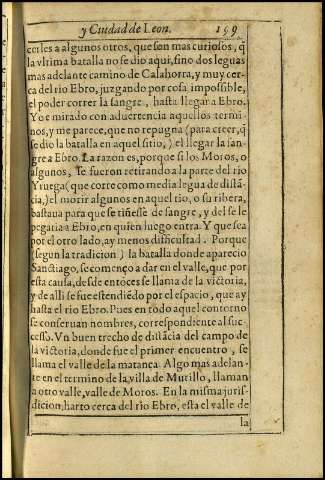 y Ciudad de Leon. 199
cerles a algunos otros, que son mas curiosos, q̃
la vltima batalla no se dio aqui, sino dos leguas
mas adelante camino de Calahorra, y muy cer-
ca del rio Ebro, juzgando por cosa impossible,
el poder correr la sangre, hasta llegar a Ebro.
Yo e mirado con aduertencia aquellos termi-
nos, y me parece, que no repugna (para creer, q̃
se dio la batalla en aquel sitio,) el llegar la san-
gre a Ebro. La razon es, porque si los Moros, o
algunos, se fueron retirando a la parte del rio
Yruega (que corre como media legua de distã-
cia,) el morir algunos en aquel rio, o su ribera,
bastaua para que se tiñesse de sangre, y del se le
pegaria a Ebro, en quien luego entra. Y que sea
por el otro lado, ay menos dificultad. Porque
(segun la tradicion) la batalla donde aparecio
Sanctiago, se començo a dar en el valle, que por
esta causa, desde entõces se llama de la victoria,
y de alli se fue estendiẽdo por el espacio, que ay
hasta el rio Ebro. Pues en todo aquel contorno
se conseruan nombres, correspondiente al suc-
cesso. Vn buen trecho de distãcia del campo de
la victoria, donde fue el primer encuentro, se
llama el valle de la matança. Algo mas adelan-
te en el termino de la villa de Murillo, llaman
a otro valle, valle de Moros. En la misma juris-
dicion, harto cerca del rio Ebro, esta el valle de
la